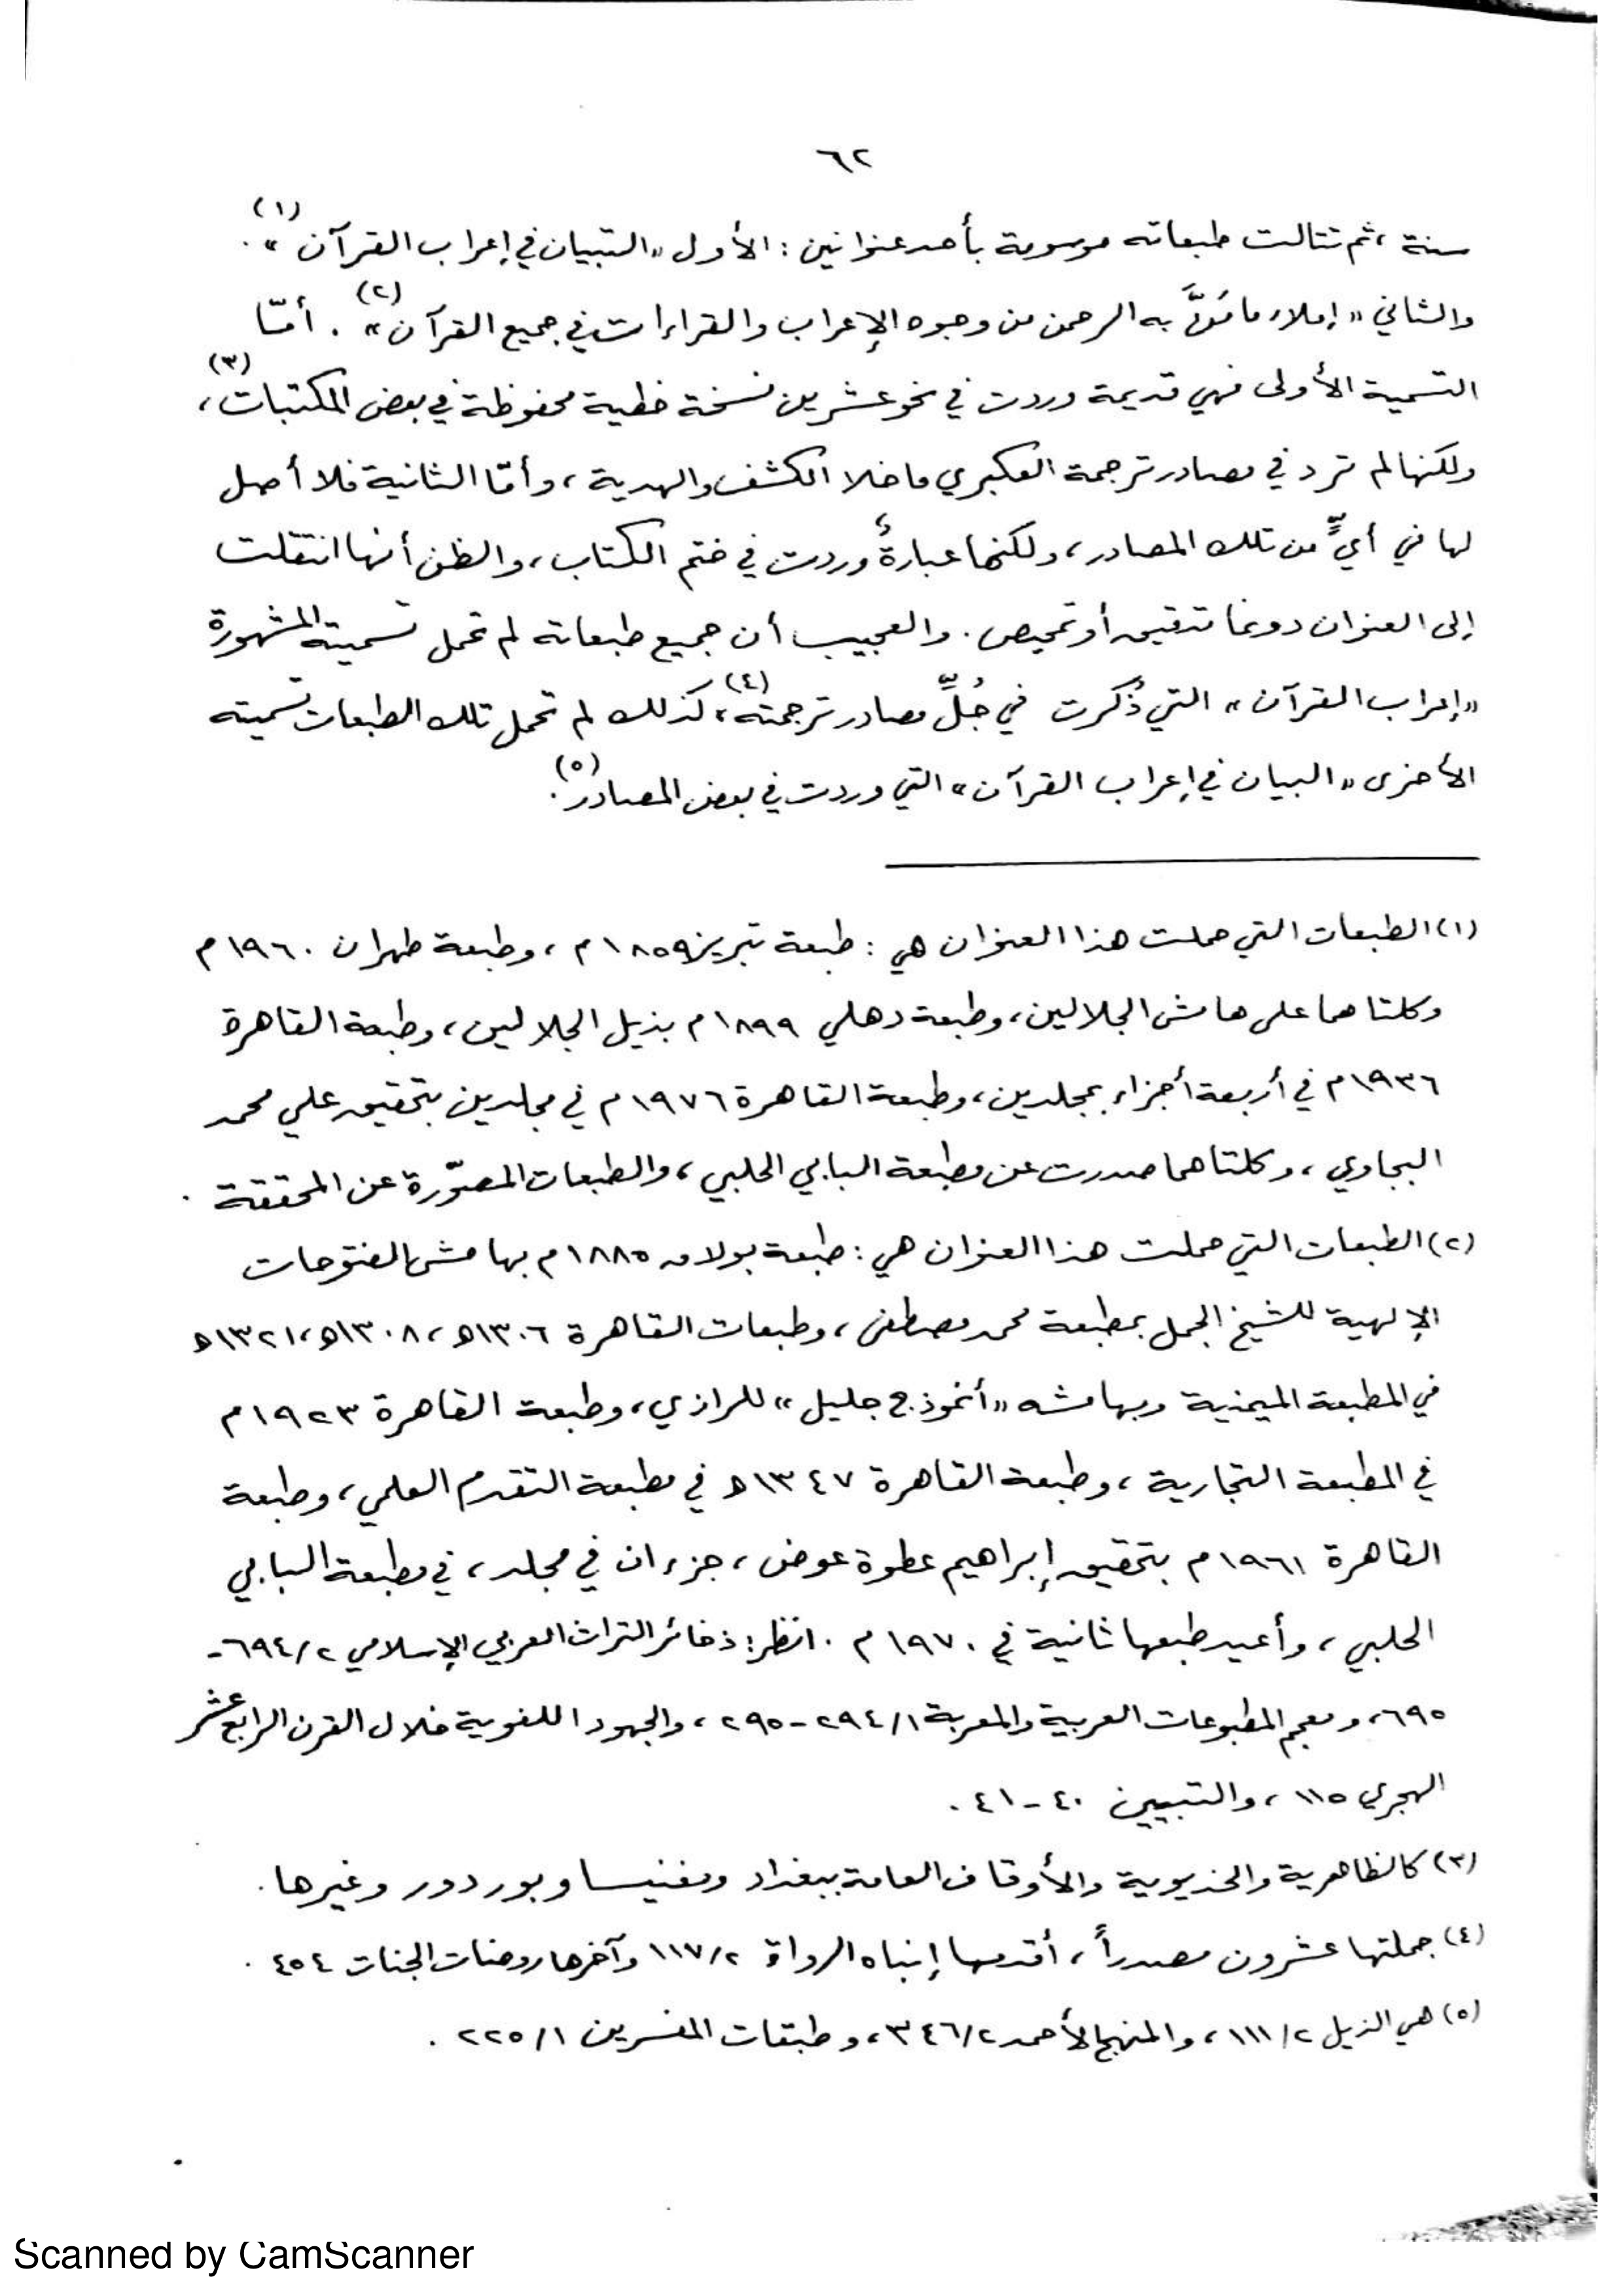 ٦٢
سنة ، ثم تتالت طبعاته موسومة بأحد عنوانين : الأول «التبيان في إعراب القرآن»(١) .
والثاني « إملاء ما مَنَّ به الرحمن من وجوه الإعراب والقراءات في جميع القرآن»(٢) . أمّا
التسمية الأولى فهي قديمة وردت في نحو عشرين نسخة خطية محفوظة في بعض المكتبات(٣)،
ولكنها لم ترد في مصادر ترجمة العكبري ما خلا الكشف والهدية ، وأمّا الثانية فلا أصل
لها في أيٍّ من تلك المصادر ، ولكنها عبارةٌ وردت في ختم الكتاب ، والظن أنها انتقلت
إلى العنوان دونما تدقيق أو تمحيص . والعجيب أن جميع طبعاته لم تحمل تسميته المشهورة
«إعراب القرآن» التي ذُكرت في جُلِّ مصادر ترجمته(٤)، كذلك لم تحمل تلك الطبعات تسميته
الأخرى «البيان في إعراب القرآن» التي وردت في بعض المصادر(٥).
(١) الطبعات التي حملت هذا العنوان هي : طبعة تبريز ١٨٥٩م ، وطبعة طهران ١٩٦٠م
وكلتاهما على هامش الجلالين ، وطبعة دهلي ١٨٩٩م بذيل الجلالين ، وطبعة القاهرة
١٩٣٦م في أربعة أجزاء بمجلدين ، وطبعة القاهرة ١٩٧٦م في مجلدين بتحقيق علي محمد
البجاوي ، وكلتاهما صدرت عن مطبعة البابي الحلبي ، والطبعات المصوّرة عن المحققة .
(٢) الطبعات التي حملت هذا العنوان هي : طبعة بولاق ١٨٨٥م بهامش الفتوحات
الإلهية للشيخ الجمل بمطبعة محمد مصطفى ، وطبعات القاهرة ١٣٠٦ه ، ١٣٠٨ه ، ١٣٢١ه
في المطبعة الميمنية وبهامشه «أنموذج جليل» للرازي ، وطبعة القاهرة ١٩٢٣م
في المطبعة التجارية ، وطبعة القاهرة ١٣٤٧ه في مطبعة التقدم العلمي ، وطبعة
القاهرة ١٩٦١م بتحقيق إبراهيم عطوة عوض ، جزءان في مجلد ، في مطبعة البابي
الحلبي ، وأعيد طبعها ثانية في ١٩٧٠م . انظر : ذخائر التراث العربي الإسلامي ٢/٦٩٤-
٦٩٥ ، ومعجم المطبوعات العربية والمعربة ١/٢٩٤-٢٩٥ ، والجهود اللغوية خلال القرن الرابع عشر
الهجري ١١٥ ، والتبيين ٤٠-٤١ .
(٣) كالظاهرية والخديوية والأوقاف العامة ببغداد ومغنيسا وبوردور وغيرها .
(٤) جملتها عشرون مصدراً ، أقدمها إنباه الرواة ٢/١١٧ وآخرها روضات الجنات ٤٥٤ .
(٥) هي الذيل ٢/١١١ ، والمنهج الأحمد ٢/٣٤٦ ، وطبقات المفسرين ١/٢٢٥ .
Scanned by CamScanner